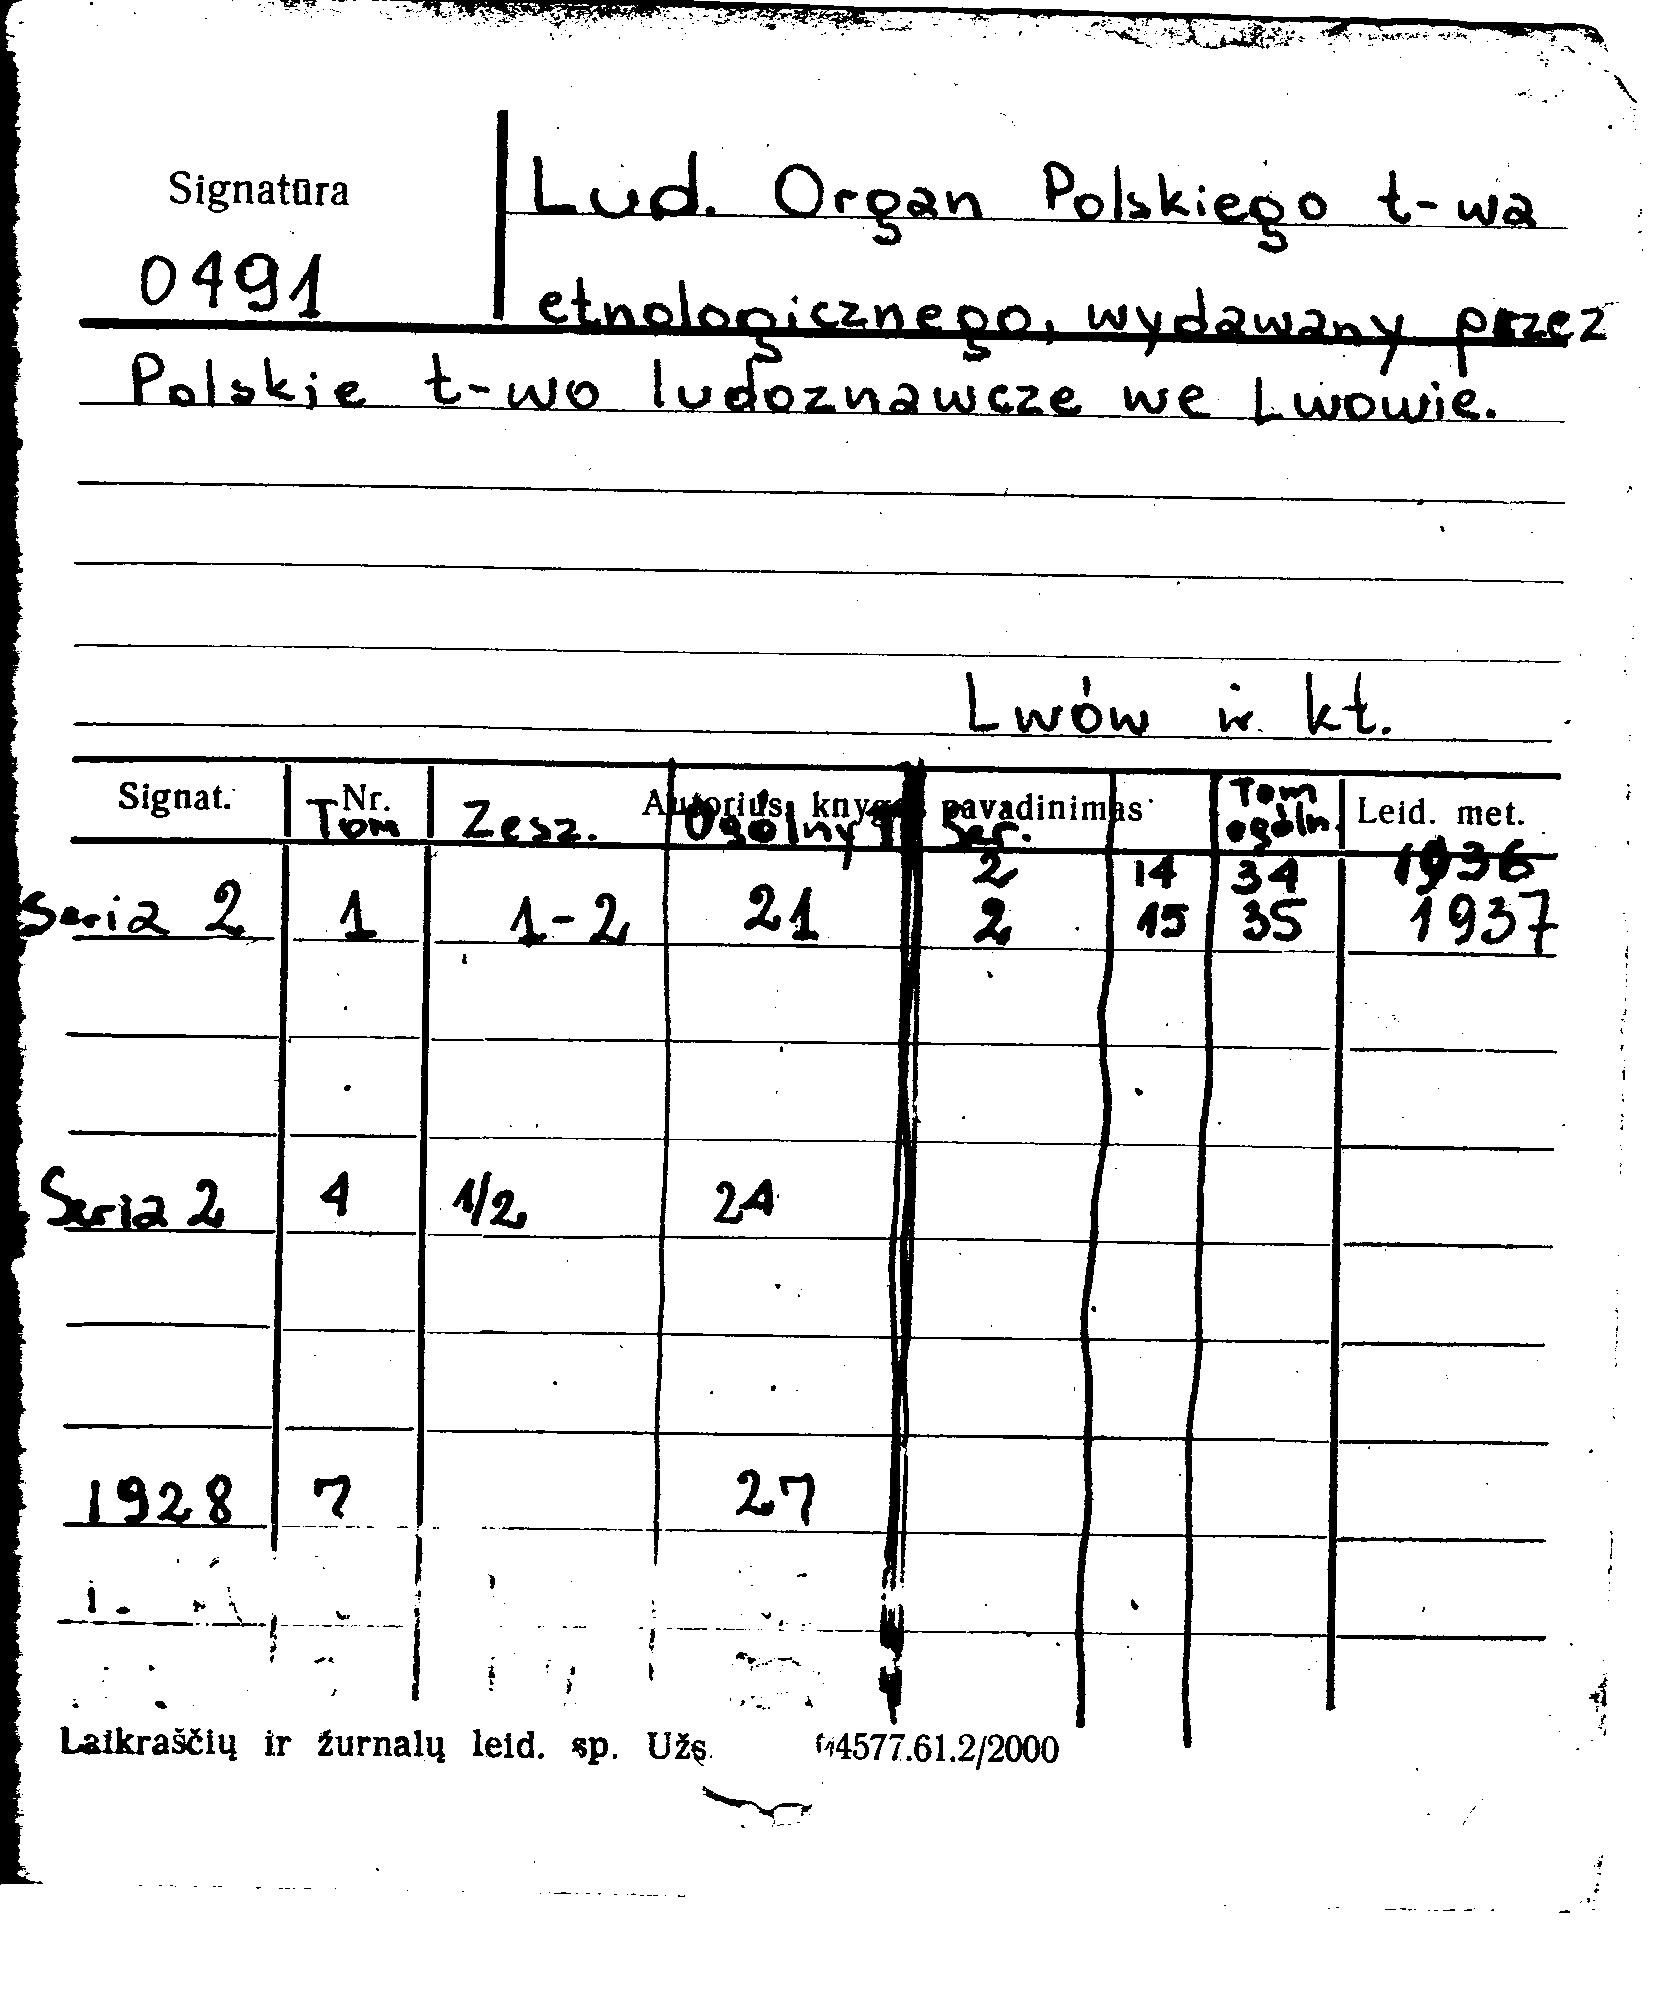 Signatūra
0491
Lud. Organ Polskiego t-wa
etnologicznego, wydawany przez
Polskie t-wo ludoznawcze we Lwowie.
Lwów ir kt.
Signat. Nr. Autorius, knygos pavadinimas Leid. met.
Tom Zesz. Ogólny Ser. Tom ogóln.
2 14 34 1936
Seria 2 1 1-2 21 2 15 35 1937
Seria 2 4 1/2 24
1928 7 27
Laikraščių ir žurnalų leid. sp. Užs. 4577.61.2/2000